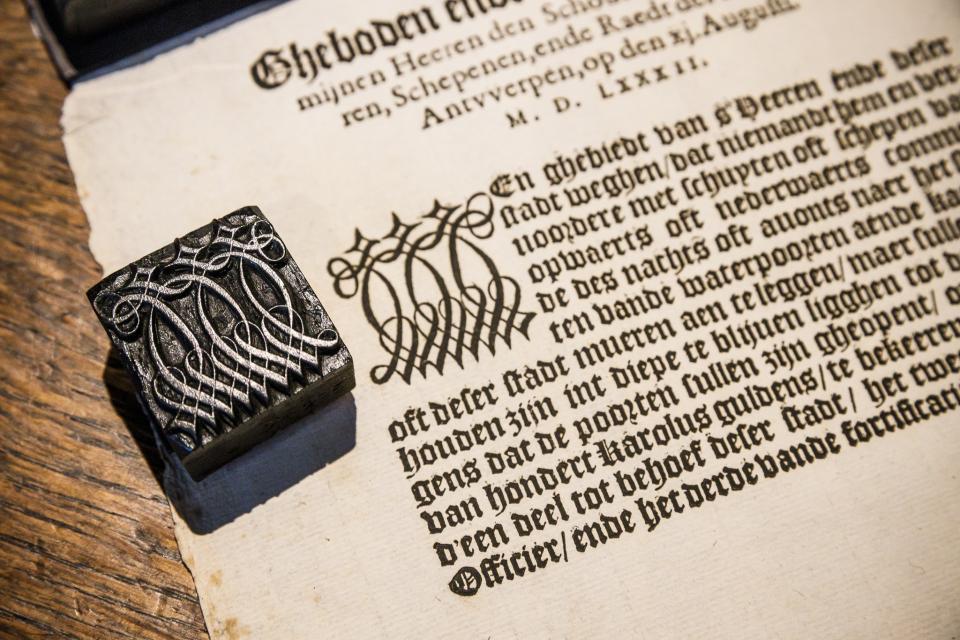 Gheboden ende
mijnen Heeren den Schou
ren, Schepenen, ende Raedt der
Antvverpen, op den xj. Augusti.
M. D. LXXXII.
WEn ghebiedt van s'Heeren ende deser
stadt weghen/ dat niemandt hem en ver-
noordere met schuyten oft schepen va
opwaerts oft nederwaerts comm
de des nachts oft auonts naer het
ten vande waterpoorten aende ka
oft deser stadt mueren aen te leggen/ maer sulle
houden zijn int diepe te blijuen ligghen tot d
gens dat de poorten sullen zijn gheopent/ o
van hondert Karolus guldens/ te bekeeren
d'een deel tot behoef deser stadt/ het twee
Officier/ ende het derde vande fortificati